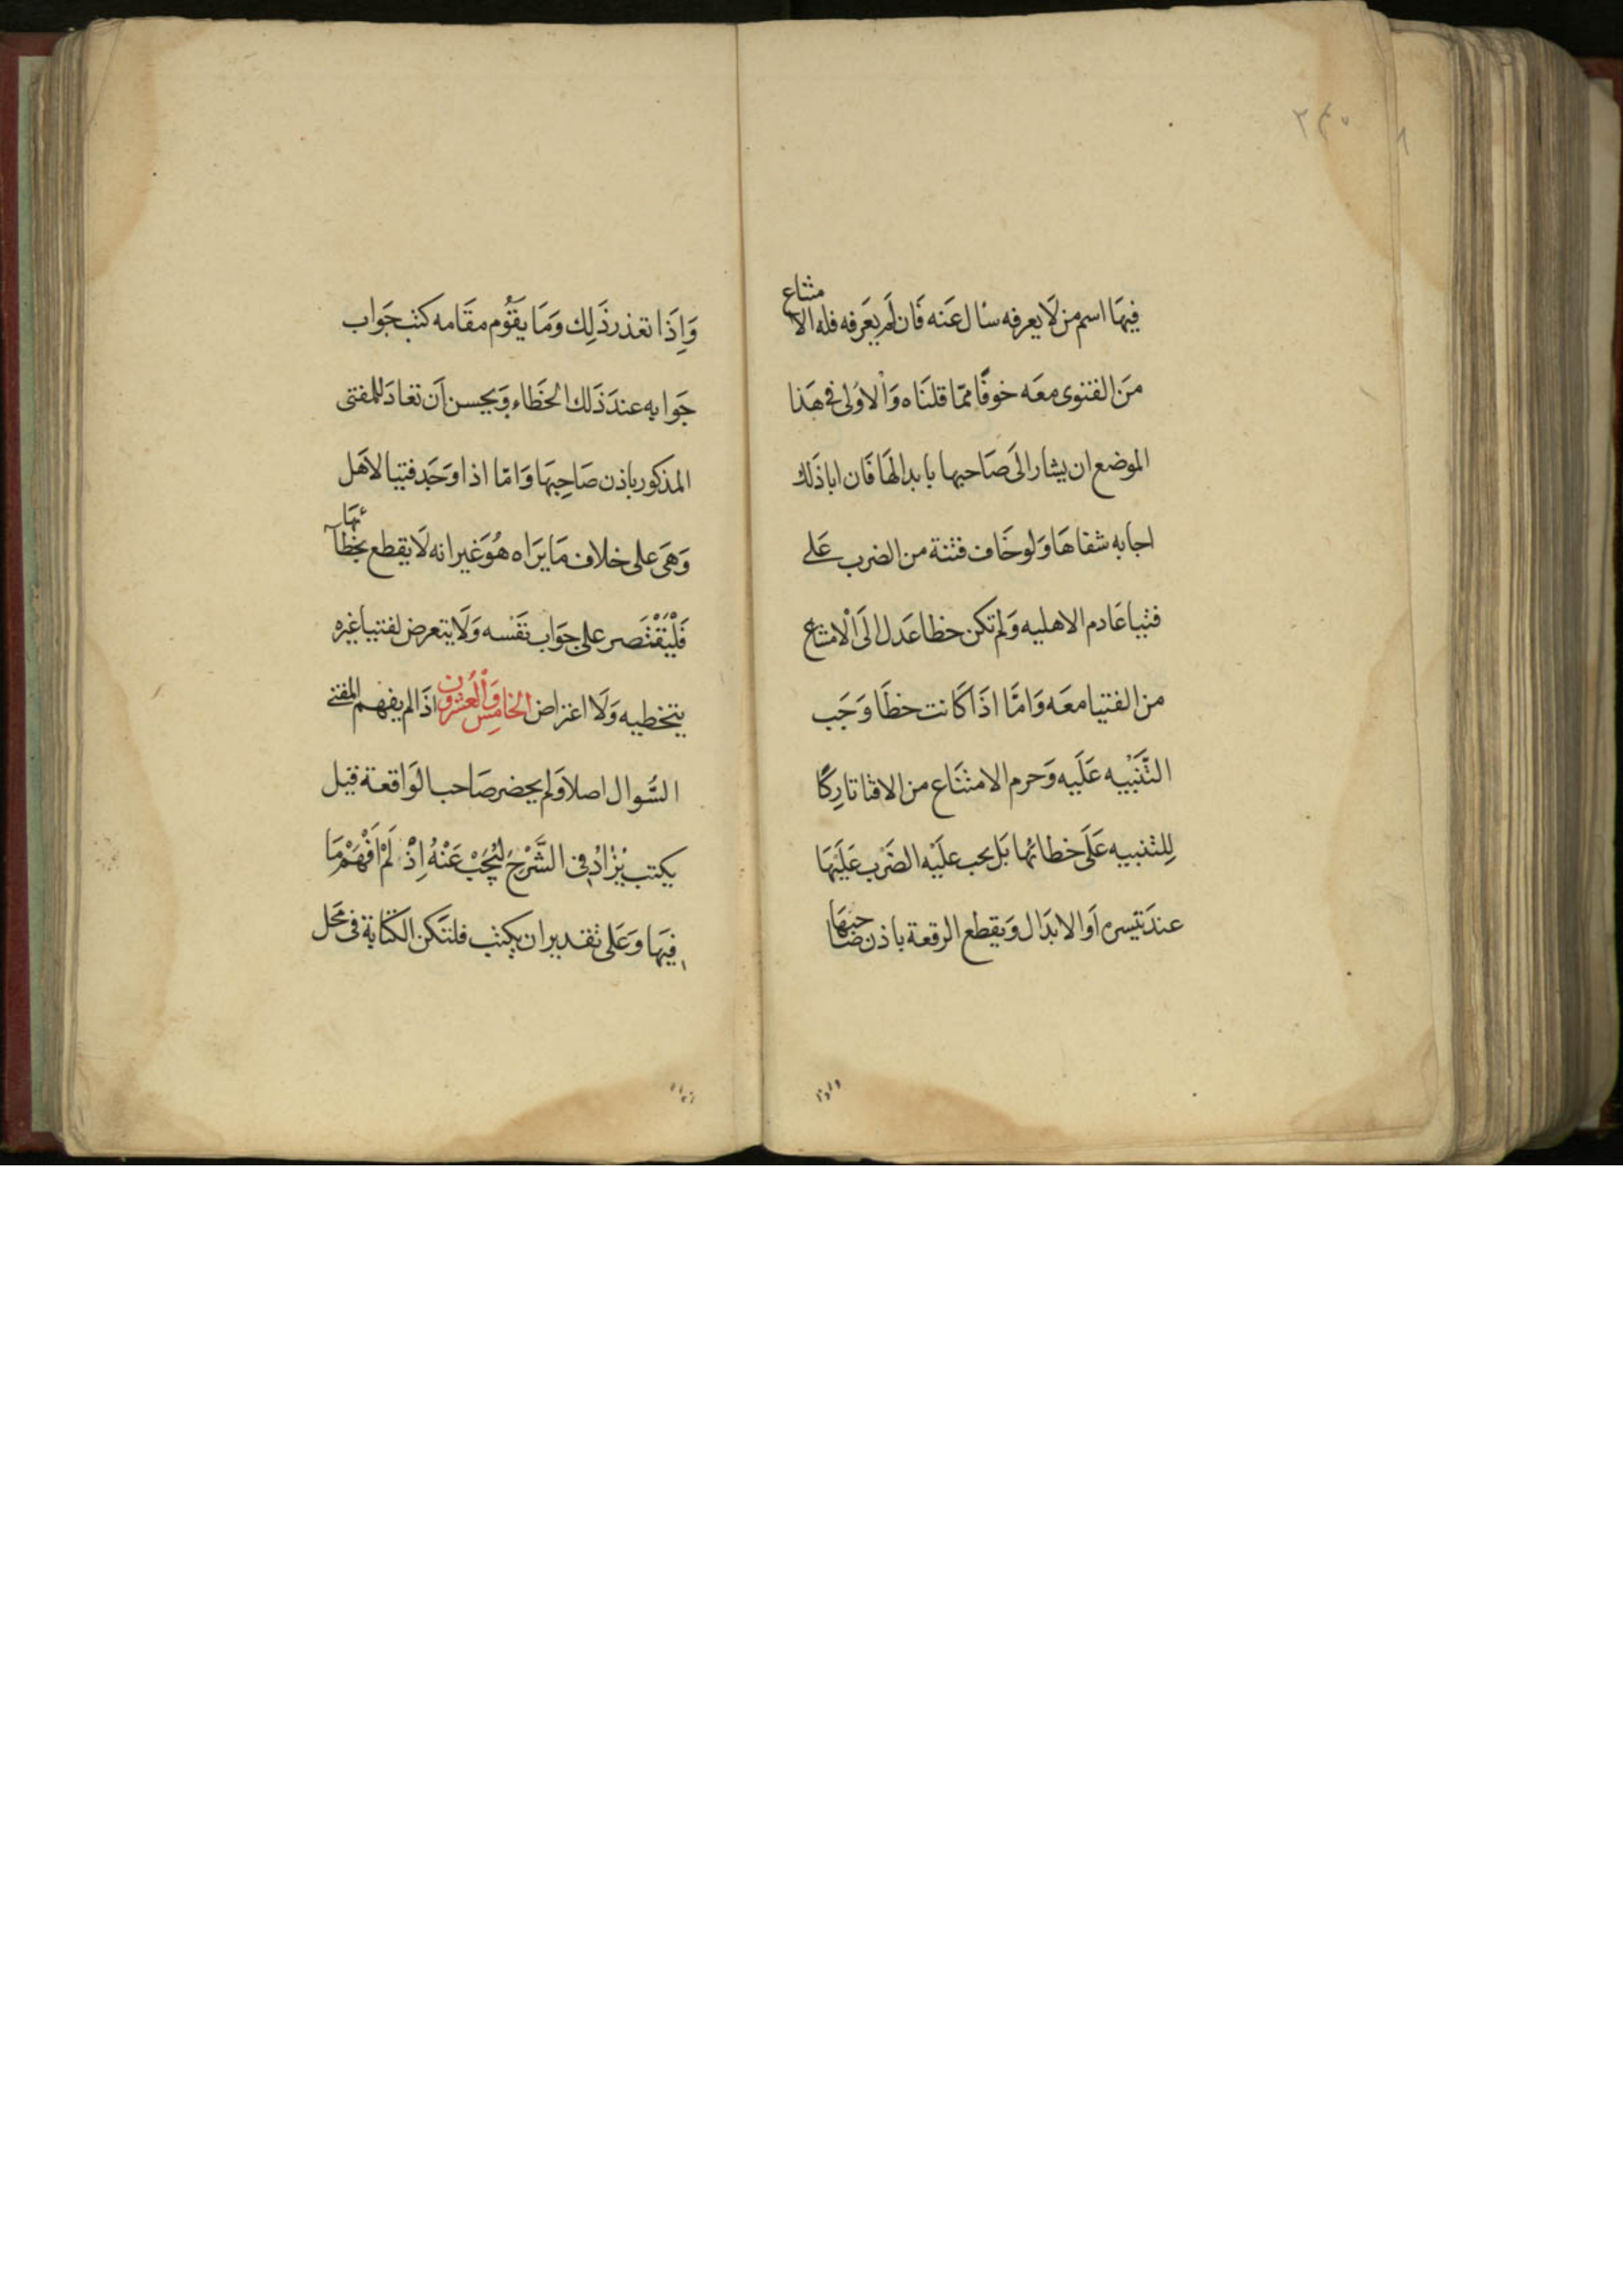 فِيهَا اسم من لَا يعرفه سأل عَنه فَان لَم يعَرفه فله الامتناع
مَن الفتوى معَه خوفًا ممّا قلنَاه وَالأولى فى هَذا
الموضع ان يشار الىَ صَاحبها بابدالهَا فَان ابا ذَلك
اجابه شفاهَا وَلو خَاف فتنة من الضرب عَلى
فتيا عَادم الاهليه وَلم تكن خطا عَدل الىَ الْامتناع
من الفتيا معَه وَامّا اذَا كَانت خطَا وَجَب
التّنَبْيه عَلَيه وَحرم الامتنَاع من الافتا تارِكًا
لِلتنبيه عَلَى خطائها بَل يجب علَيْه الضَرْب عَلَيْهَا
عندَ تَيَسره اَو الابدَال وَيقطع الرقعة باذن صَاحبهَا
وَاِذَا تعذر ذَلِك وَمَا يقَوُم مقَامه كتب جَواب
جَوابه عندَ ذَلك الخَطاء وَيحسن اَن تعَادَ للمفتى
المذكور باذن صَاحِبهَا وَامّا اذا وَجَد فتيا الاَهل
وَهىَ على خلاف مَا يرَاه هُوَ غَير انه لَا يقطع بخطآئهَا
فَلْيَقْتَصر على جوَاب نَفْسه وَلَا يتعرض لفتيا غيره
بتخطيه وَلَا اعتراض الخَامِس وَالْعُشْرُون اذَا لم يفهم المفتى
السُّوال اصلا وَلم يحضر صَاحب الوَاقعة قيل
يكتب يُزَادُ فِى الشَّرْحِ لِنُجِبْ عَنْهُ اِذْ لَمْ اَفْهَمْ مَا
فِيهَا وَعَلى تقدير ان يكتب فلتكن الكتابة فى مَحَل